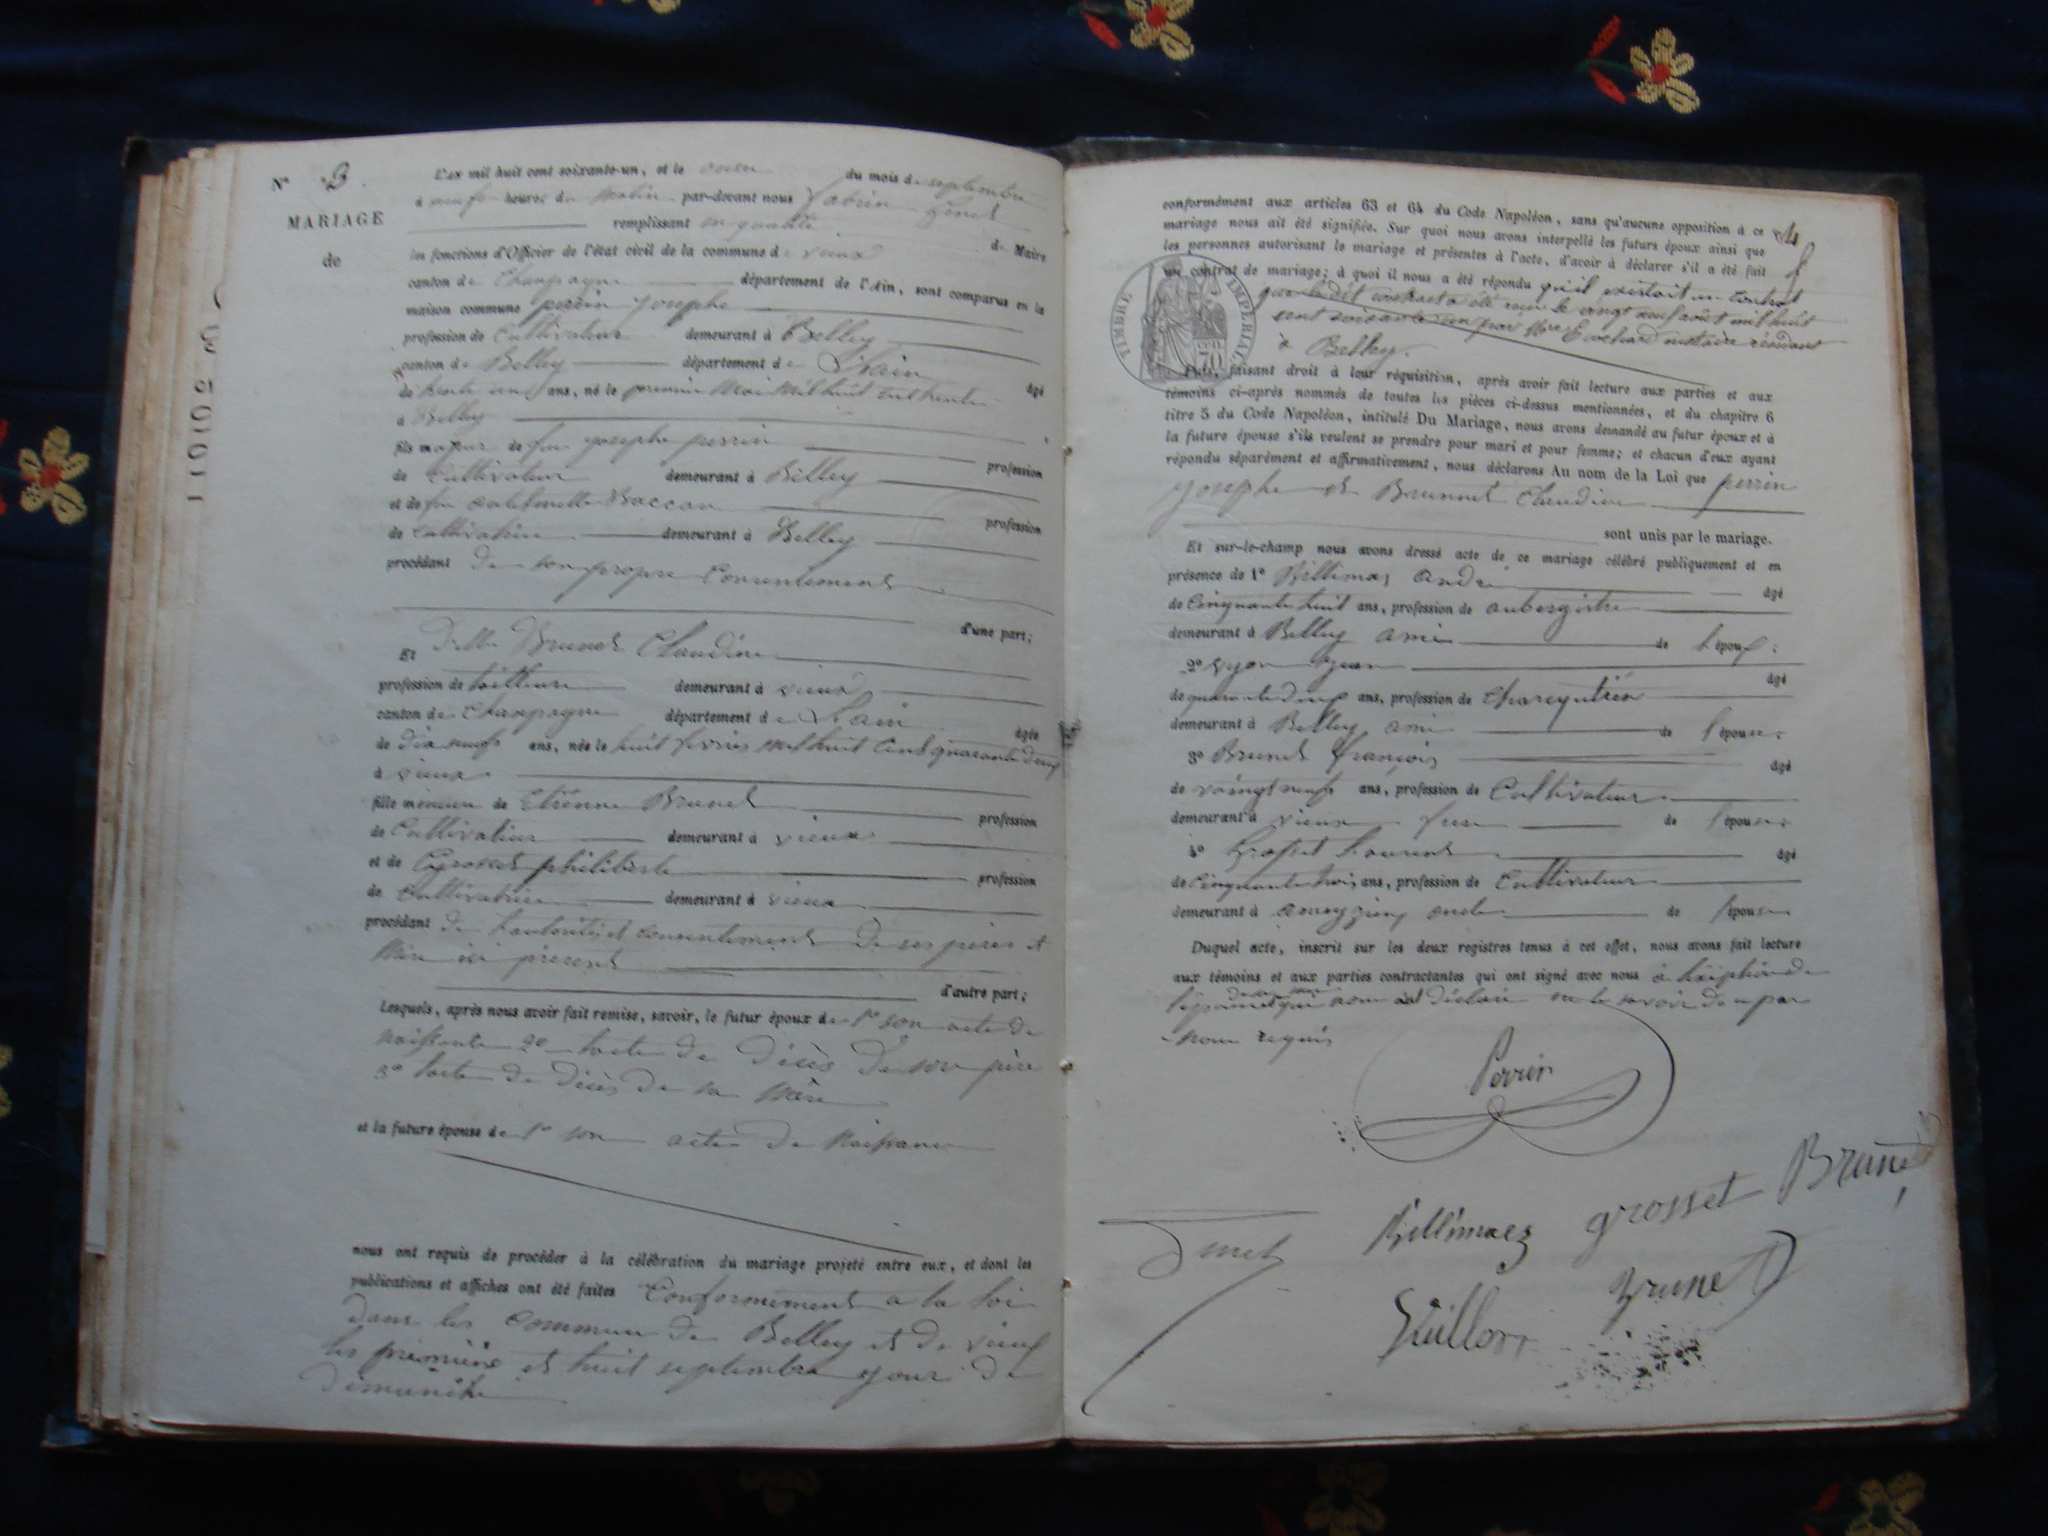 N° 3.
MARIAGE
de
L'an mil huit cent soixante-un, et le onze du mois de septembre
à neuf heures du matin par-devant nous fabrin Genet
remplissant en qualité de Maire
les fonctions d'Officier de l'état civil de la commune de vieux
canton de Champagne département de l'Ain, sont comparus en la
maison commune perrin josephe
profession de Cultivateur demeurant à Belley
canton de Belley département de L'ain âgé
de trente un ans, né le premier Mai Mil huit cent trente
à Belley
fils majeur de feu josephe perrin profession
de Cultivateur demeurant à Belley
et de feu profession
de Cultivatrice demeurant à Belley
procédant de son propre Consentement
d'une part;
Et Delle Brunet Claudine
profession de tailleuse demeurant à vieux
canton de Champagne département de L'ain âgée
de dix neuf ans, née le huit fevrier Mil huit Cent quarante deux
à vieux
fille mineure de Etienne Brunet profession
de Cultivateur demeurant à vieux
et de Grosset philiberte profession
de Cultivatrice demeurant à vieux
procédant de l'autorité et consentement de ses pères et
Mère ici présents
d'autre part;
Lesquels, après nous avoir fait remise, savoir, le futur époux de 1° son acte de
naissance 2° l'acte de décès de son père
3° l'acte de décès de sa Mère
et la future épouse de 1° son acte de Naissance
nous ont requis de procéder à la célébration du mariage projeté entre eux, et dont les
publications et affiches ont été faites Conformément a la loi
dans les Commune de Belley et de vieux
les première et huit septembre jour de
dimanche
conformément aux articles 63 et 64 du Code Napoléon, sans qu'aucune opposition à ce
mariage nous ait été signifiée. Sur quoi nous avons interpellé les futurs époux ainsi que
les personnes autorisant le mariage et présentes à l'acte, d'avoir à déclarer s'il a été fait
un contrat de mariage; à quoi il nous a été répondu qu'il existait un Contrat
que le dit contrat a été reçu le vingt neuf août mil huit
cent soixante un par Mtre notaire résidant
à Belley.
TIMBRE IMPÉRIAL
70
faisant droit à leur réquisition, après avoir fait lecture aux parties et aux
témoins ci-après nommés de toutes les pièces ci-dessus mentionnées, et du chapitre 6
titre 5 du Code Napoléon, intitulé Du Mariage, nous avons demandé au futur époux et à
la future épouse s'ils veulent se prendre pour mari et pour femme; et chacun d'eux ayant
répondu séparément et affirmativement, nous déclarons Au nom de la Loi que perrin
josephe et Brunet Claudine
sont unis par le mariage.
Et sur-le-champ nous avons dressé acte de ce mariage célébré publiquement et en
présence de 1° Billimaz andré âgé
de Cinquante huit ans, profession de aubergiste
demeurant à Belley ami de l'époux;
2° âgé
de quarante deux ans, profession de Charcutier
demeurant à Belley ami de l'épouse
3° Brunet françois âgé
de vaingt neuf ans, profession de Cultivateur
demeurant à vieux frere de l'épouse
4° Grosset Laurent âgé
de Cinquante trois ans, profession de Cultivateur
demeurant à oncle de l'épouse
Duquel acte, inscrit sur les deux registres tenus à cet effet, nous avons fait lecture
aux témoins et aux parties contractantes qui ont signé avec nous à l'exption de
qui nous ont déclaré ne le savoir de ce par
Nous requis
Perrin
Billimaz grosset Brunet
Genet
Guillon Brunet